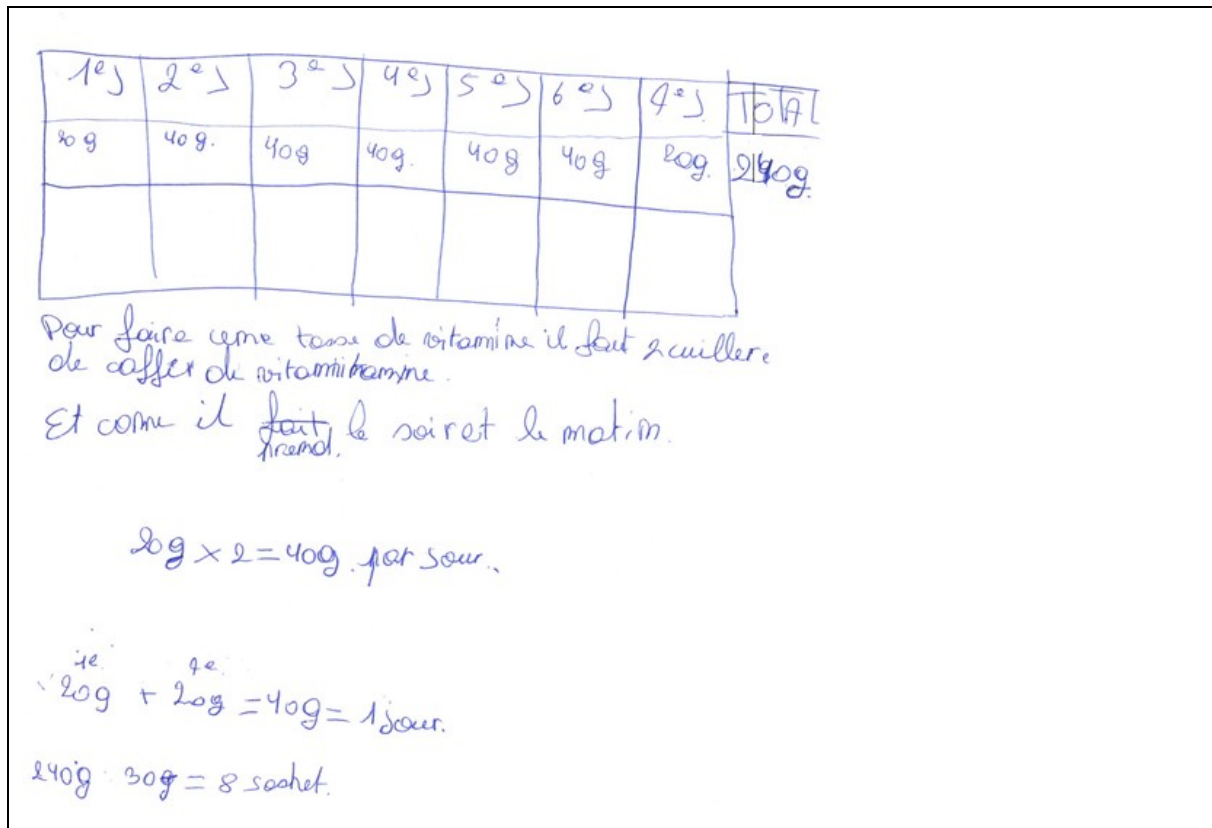 1e J 2e J 3e J 4e J 5e J 6e J 7e J. TOTAL
20 g 40 g. 40g 40g. 40g 40g 20g. 240g.
Pour faire une tasse de vitamine il faut 2 cuillere
de caffer de vitaminitamine.
Et come il fait le soir et le matin.
prend.
20g × 2 = 40g. par jour.
1e 7e
20g + 20g = 40g = 1 jour.
240g : 30g = 8 sachet.